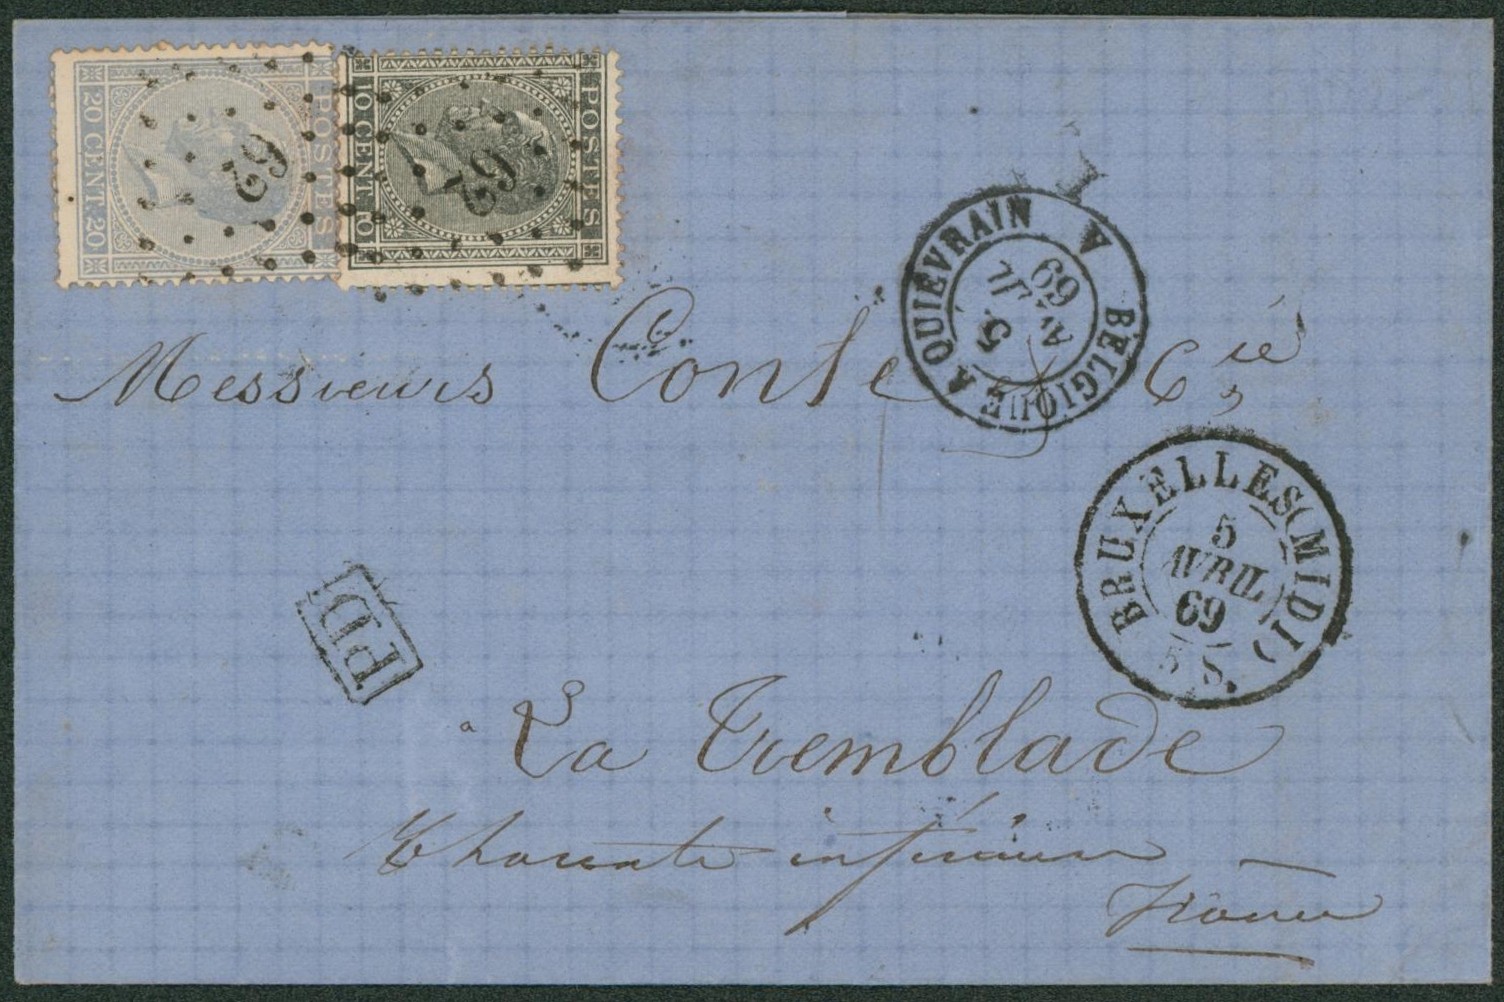 POSTES
20 CENT. 20
62
POSTES
10 CENT. 10
62
BELGIQUE A QUIEVRAIN
5
AVRIL
69
Messieurs Conte & Cie,
BRUXELLES (MIDI)
5
AVRIL
69
5 S.
PD
a La Tremblade
Charente inférieure
France